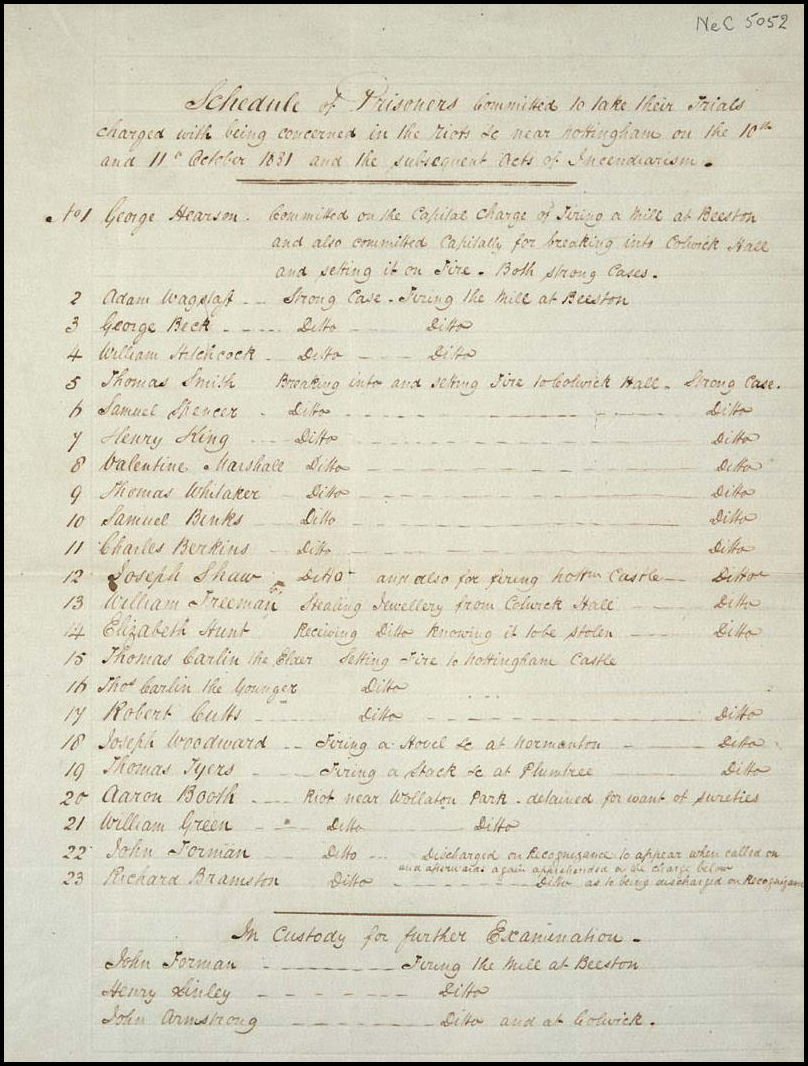 NeC 5052
Schedule of Prisoners Committed to take their Trials
charged with being concerned in the Riots &c near Nottingham on the 10th
and 11th October 1831 and the subsequent Acts of Incendiarism.
No 1 George Hearson. Committed on the Capital Charge of Firing a Mill at Beeston
and also committed Capitally for breaking into Colwick Hall
and setting it on Fire. Both strong Cases.
2 Adam Wagstaff -- Strong Case. Firing the Mill at Beeston
3 George Beck ---- Ditto - Ditto
4 William Hitchcock - Ditto --- Ditto
5 Thomas Smith Breaking into and setting Fire to Colwick Hall - Strong Case.
6 Samuel Spencer - Ditto --- Ditto
7 Henry King --- Ditto --- Ditto
8 Valentine Marshall Ditto --- Ditto
9 Thomas Whitaker - Ditto --- Ditto
10 Samuel Binks --- Ditto --- Ditto
11 Charles Berkins - Ditto --- Ditto
12 Joseph Shaw - Ditto - and also for firing Nottm Castle - Ditto
13 William Freeman Stealing Jewellery from Colwick Hall --- Ditto
14 Elizabeth Hunt Receiving Ditto knowing it to be stolen --- Ditto
15 Thomas Carlin the Elder Setting Fire to Nottingham Castle
16 Thos Carlin the Younger Ditto
17 Robert Cutts --- Ditto --- Ditto
18 Joseph Woodward -- Firing a Hovel &c at Normanton --- Ditto
19 Thomas Tyers --- Firing a Stack &c at Plumtree --- Ditto
20 Aaron Booth --- Riot near Wollaton Park - detained for want of sureties
21 William Green --- Ditto --- Ditto
22 John Forman --- Ditto --- Discharged on Recognizance to appear when called on
and afterwards again apprehended on the charge below
23 Richard Bramston Ditto --- Ditto as to being discharged on Recognizance
In Custody for further Examination -
John Forman --- Firing the Mill at Beeston
Henry Linley --- Ditto
John Armstrong --- Ditto and at Colwick.